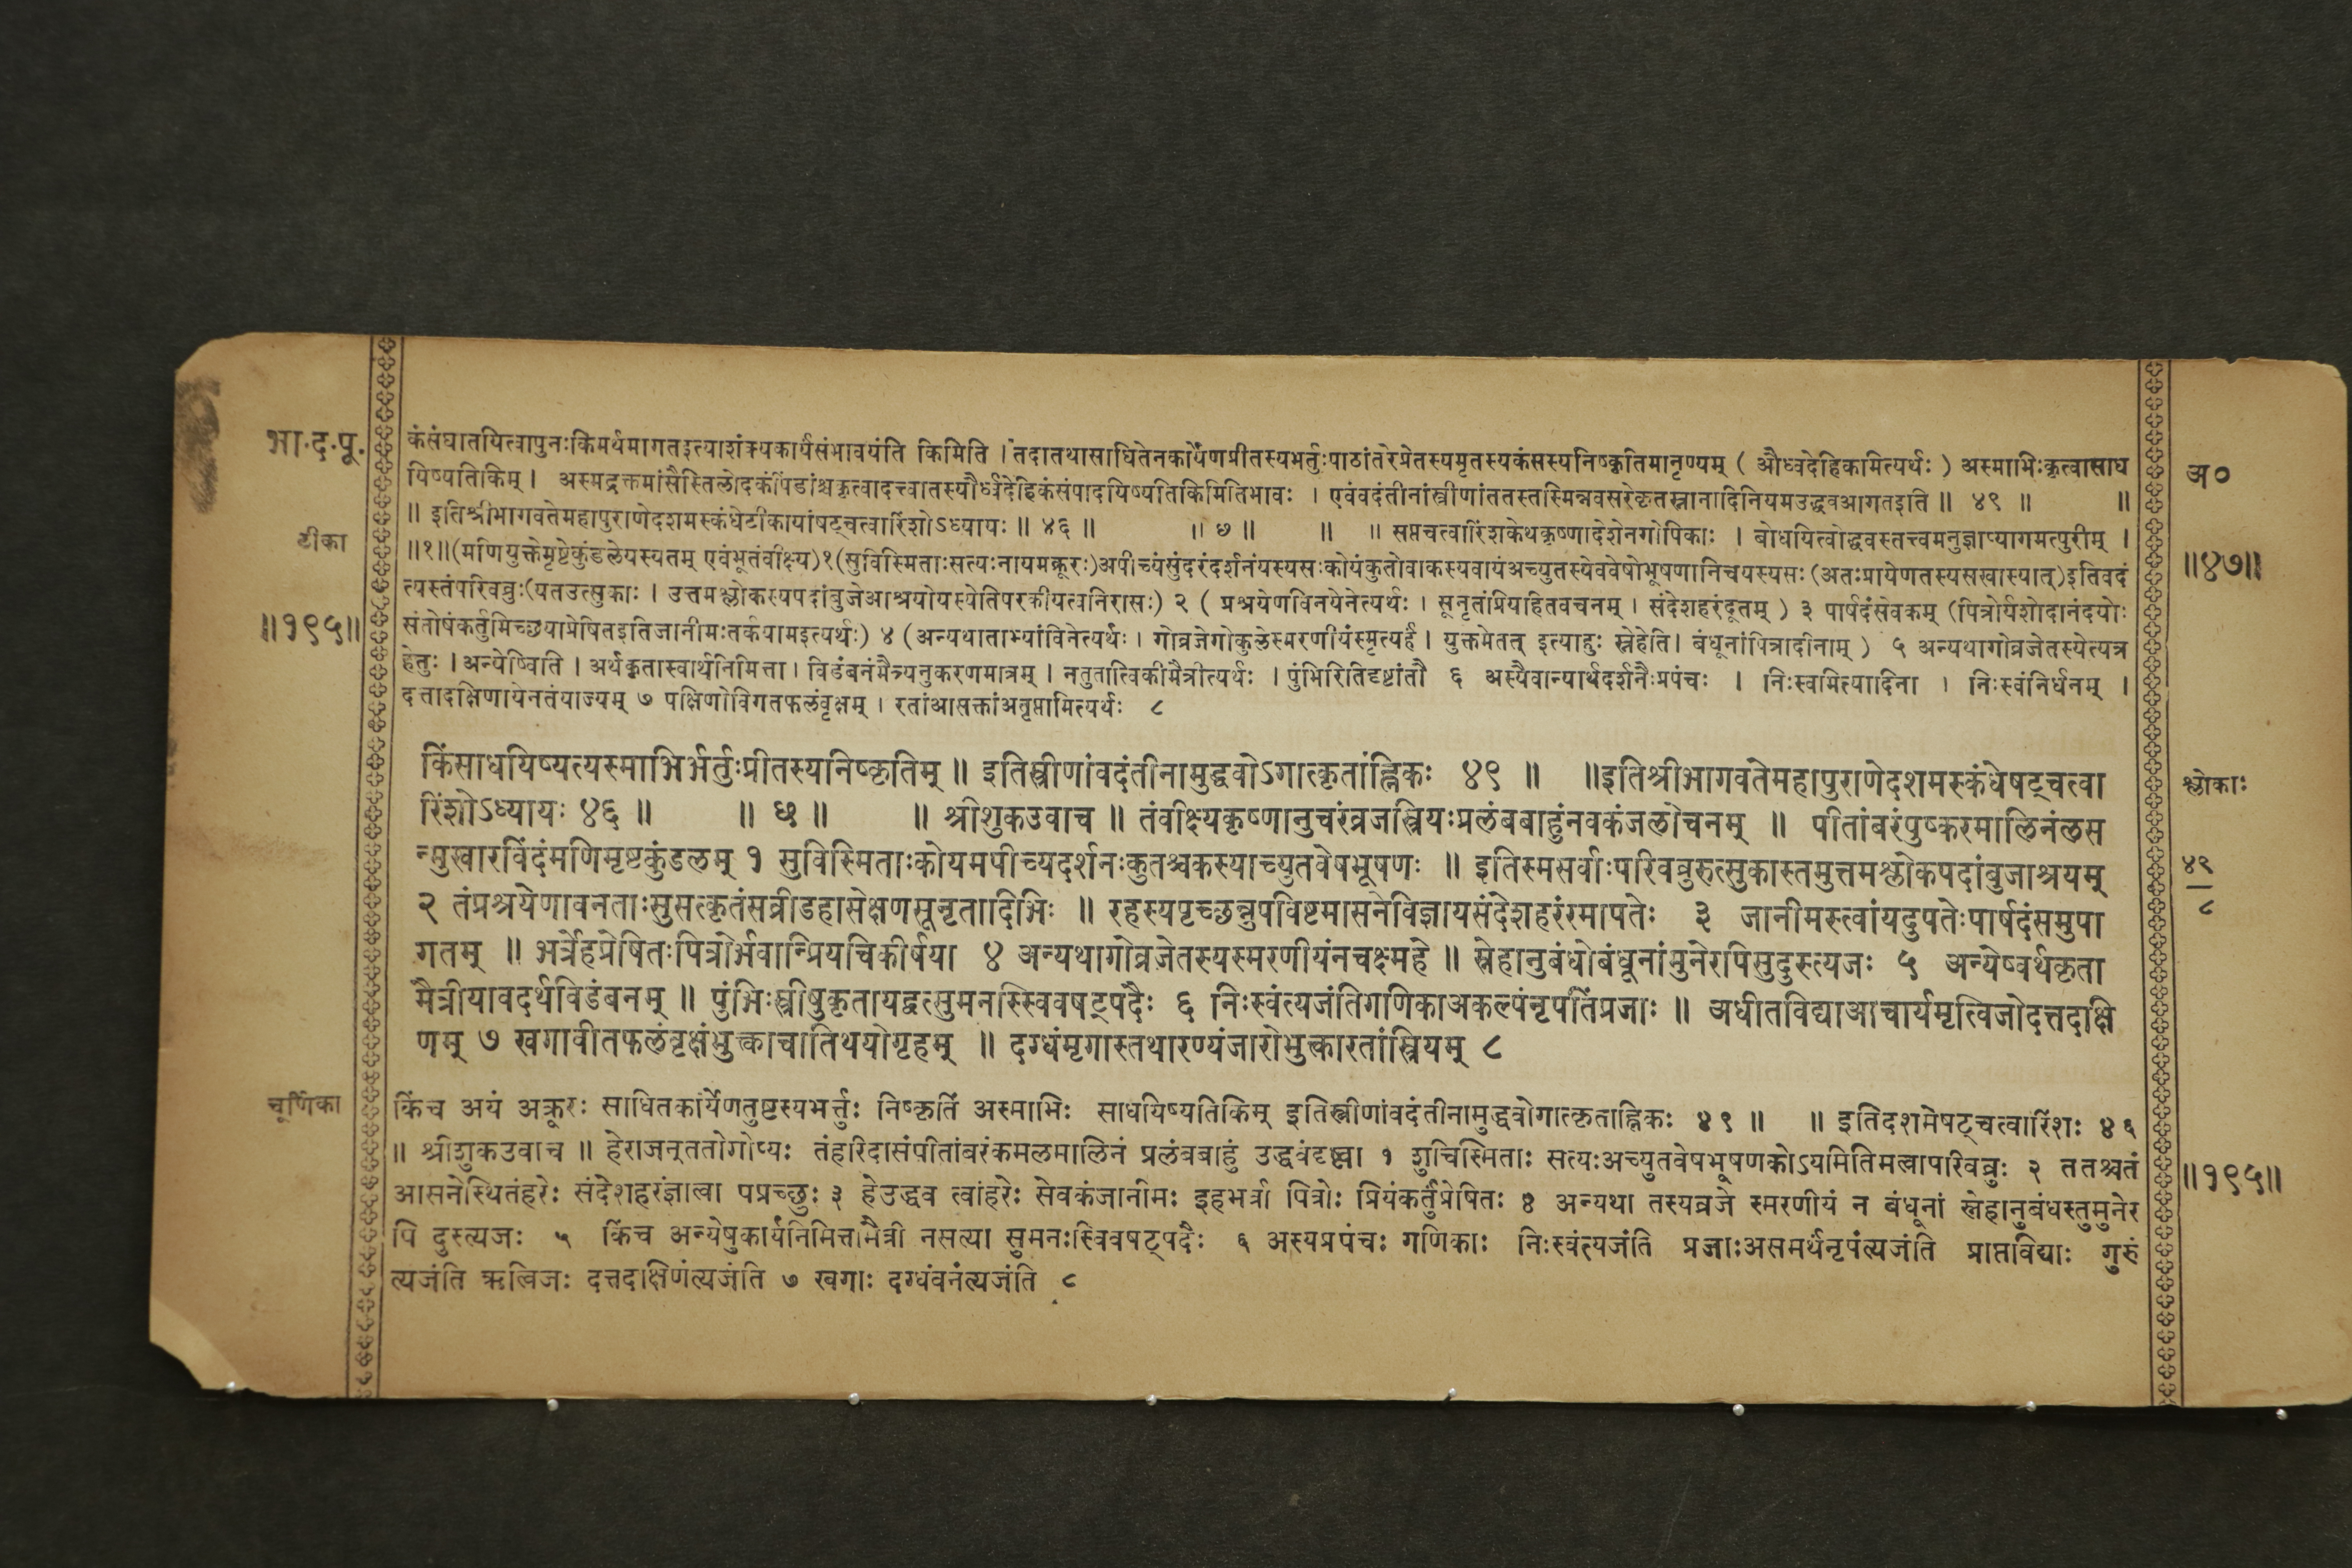 भा॰द॰पू॰
कंसंघातयित्वापुनःकिमर्थमागतइत्याशंक्यकार्यसंभावयंति किमिति । तदातथासाधितेनकार्येणप्रीतस्यभर्तुःपाठांतरेप्रेतस्यमृतस्यकंसस्यनिष्कृतिमानृण्यम् ( और्ध्वदेहिकमित्यर्थः ) अस्माभिःकृत्वासाध
यिष्यतिकिम् । अस्मद्रक्तमांसैस्तिलोदकपिंडांश्चकृत्वादत्त्वातस्यौर्ध्वदेहिकंसंपादयिष्यतिकिमितिभावः । एवंवदंतीनांस्त्रीणांततस्तस्मिन्नवसरेकृतस्नानादिनियमउद्धवआगतइति ॥ ४९ ॥ ॥
अ०
॥ इतिश्रीभागवतेमहापुराणेदशमस्कंधेटीकायांषट्चत्वारिंशोऽध्यायः ॥ ४६ ॥ ॥ ७ ॥ ॥ ॥ सप्तचत्वारिंशकेथकृष्णादेशेनगोपिकाः । बोधयित्वोद्धवस्तत्त्वमनुज्ञाप्यागमत्पुरीम् ।
टीका
॥१॥(मणियुक्तेमृष्टेकुंडलेयस्यतम् एवंभूतंवीक्ष्य)१(सुविस्मिताःसत्यःनायमक्रूरः)अपीच्यंसुंदरंदर्शनंयस्यसःकोयंकुतोवाकस्यवायंअच्युतस्येववेषोभूषणानिचयस्यसः(अतःप्रायेणतस्यसखास्यात्)इतिवदं
॥४७॥
त्यस्तंपरिवव्रुः(यतउत्सुकाः । उत्तमश्लोकस्यपदांबुजेआश्रयोयस्येतिपरकीयत्वनिरासः) २ ( प्रश्रयेणविनयेनेत्यर्थः । सूनृतांप्रियाहितवचनम् । संदेशहरंदूतम् ) ३ पार्षदंसेवकम् (पित्रोर्यशोदानंदयोः
॥१९५॥
संतोषंकर्तुमिच्छयाप्रेषितइतिजानीमःतर्कयामइत्यर्थः) ४ (अन्यथाताभ्यांविनेत्यर्थः । गोव्रजेगोकुलेस्मरणीयंस्मृत्यर्हं । युक्तमेतत् इत्याहुः स्नेहेति। बंधूनांपित्रादीनाम् ) ५ अन्यथागोव्रजेतस्येत्यत्र
हेतुः । अन्येष्विति । अर्थकृतास्वार्थनिमित्ता । विडंबनंमैत्र्यनुकरणमात्रम् । नतुतात्विकीमैत्रीत्यर्थः । पुंभिरितिदृष्टांतौ ६ अस्यैवान्यार्थदर्शनैःप्रपंचः । निःस्वमित्यादिना । निःस्वंनिर्धनम् ।
दत्तादक्षिणायेनतंयाज्यम् ७ पक्षिणोविगतफलंवृक्षम् । रतांआसक्तांअतृप्तामित्यर्थः ८
किंसाधयिष्यत्यस्माभिर्भर्तुःप्रीतस्यनिष्कृतिम् ॥ इतिस्त्रीणांवदंतीनामुद्धवोऽगात्कृतांह्निकः ४९ ॥ ॥इतिश्रीभागवतेमहापुराणेदशमस्कंधेषट्चत्वा
श्लोकाः
रिंशोऽध्यायः ४६ ॥ ॥ ७ ॥ ॥ श्रीशुकउवाच ॥ तंवीक्ष्यकृष्णानुचरंव्रजस्त्रियःप्रलंबबाहुंनवकंजलोचनम् ॥ पीतांबरंपुष्करमालिनंलस
न्मुखारविंदंमणिमृष्टकुंडलम् १ सुविस्मिताःकोयमपीच्यदर्शनःकुतश्चकस्याच्युतवेषभूषणः ॥ इतिस्मसर्वाःपरिवव्रुरुत्सुकास्तमुत्तमश्लोकपदांबुजाश्रयम्
४९
८
२ तंप्रश्रयेणावनताःसुसत्कृतंसव्रीडहासेक्षणसूनृतादिभिः ॥ रहस्यपृच्छन्नुपविष्टमासनेविज्ञायसंदेशहरंरमापतेः ३ जानीमस्त्वांयदुपतेःपार्षदंसमुपा
गतम् ॥ भर्त्रेहप्रेषितःपित्रोर्भवान्प्रियचिकीर्षया ४ अन्यथागोव्रजेतस्यस्मरणीयंनचक्ष्महे ॥ स्नेहानुबंधोबंधूनांमुनेरपिसुदुस्त्यजः ५ अन्येष्वर्थकृता
मैत्रीयावदर्थविडंबनम् ॥ पुंभिःस्त्रीषुकृतायद्वत्सुमनस्स्विवषट्पदैः ६ निःस्वंत्यजंतिगणिकाअकल्पंनृपतिंप्रजाः ॥ अधीतविद्याआचार्यमृत्विजोदत्तदक्षि
णम् ७ खगावीतफलंवृक्षंभुक्त्वाचातिथयोगृहम् ॥ दग्धंमृगास्तथारण्यंजारोभुक्त्वारतांस्त्रियम् ८
चूर्णिका
किंच अयं अक्रूरः साधितकार्येणतुष्टस्यभर्त्तुः निष्कृतिं अस्माभिः साधयिष्यतिकिम् इतिस्त्रीणांवदंतीनामुद्धवोगात्कृताह्निकः ४९ ॥ ॥ इतिदशमेषट्चत्वारिंशः ४६
॥ श्रीशुकउवाच ॥ हेराजन्ततोगोप्यः तंहरिदासंपीतांबरंकमलमालिनं प्रलंबबाहुं उद्धवंदृष्ट्वा १ शुचिस्मिताः सत्यःअच्युतवेषभूषणकोऽयमितिमत्वापरिवव्रुः २ ततश्चतं
॥१९५॥
आसनेस्थितंहरेः संदेशहरंज्ञात्वा पप्रच्छुः ३ हेउद्धव त्वांहरेः सेवकंजानीमः इहभर्त्रा पित्रोः प्रियंकर्तुंप्रेषितः ४ अन्यथा तस्यव्रजे स्मरणीयं न बंधूनां स्नेहानुबंधस्तुमुनेर
पि दुस्त्यजः ५ किंच अन्येषुकार्यनिमित्तामैत्री नसत्या सुमनःस्विवषट्पदैः ६ अस्यप्रपंचः गणिकाः निःस्वंत्यजंति प्रजाःअसमर्थंनृपंत्यजंति प्राप्तविद्याः गुरुं
त्यजंति ऋत्विजः दत्तदक्षिणंत्यजंति ७ खगाः दग्धंवनंत्यजंति ८